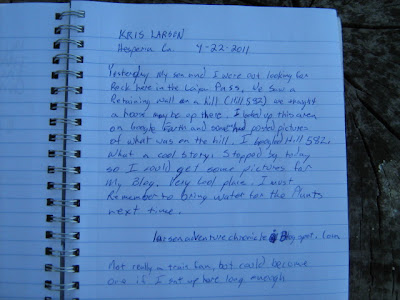 KRIS LARSON
Hesperia Ca. 4-22-2011
Yesterday My son and I were out looking for
Rock here in the Cajon Pass, We saw a
Retaining wall on a hill (Hill 582) we thought
a house may be up there. I looked up this area
on Google Earth and some had posted pictures
of what was on the hill. I googled Hill 582.
What a cool story. Stopped by today
so I could get some pictures for
My Blog. Very Cool place. I must
Remember to bring water for the Plants
next time.
larsonadventurechronicle Blogspot.com
Not really a train fan, but could become
one if I sat up here long enough